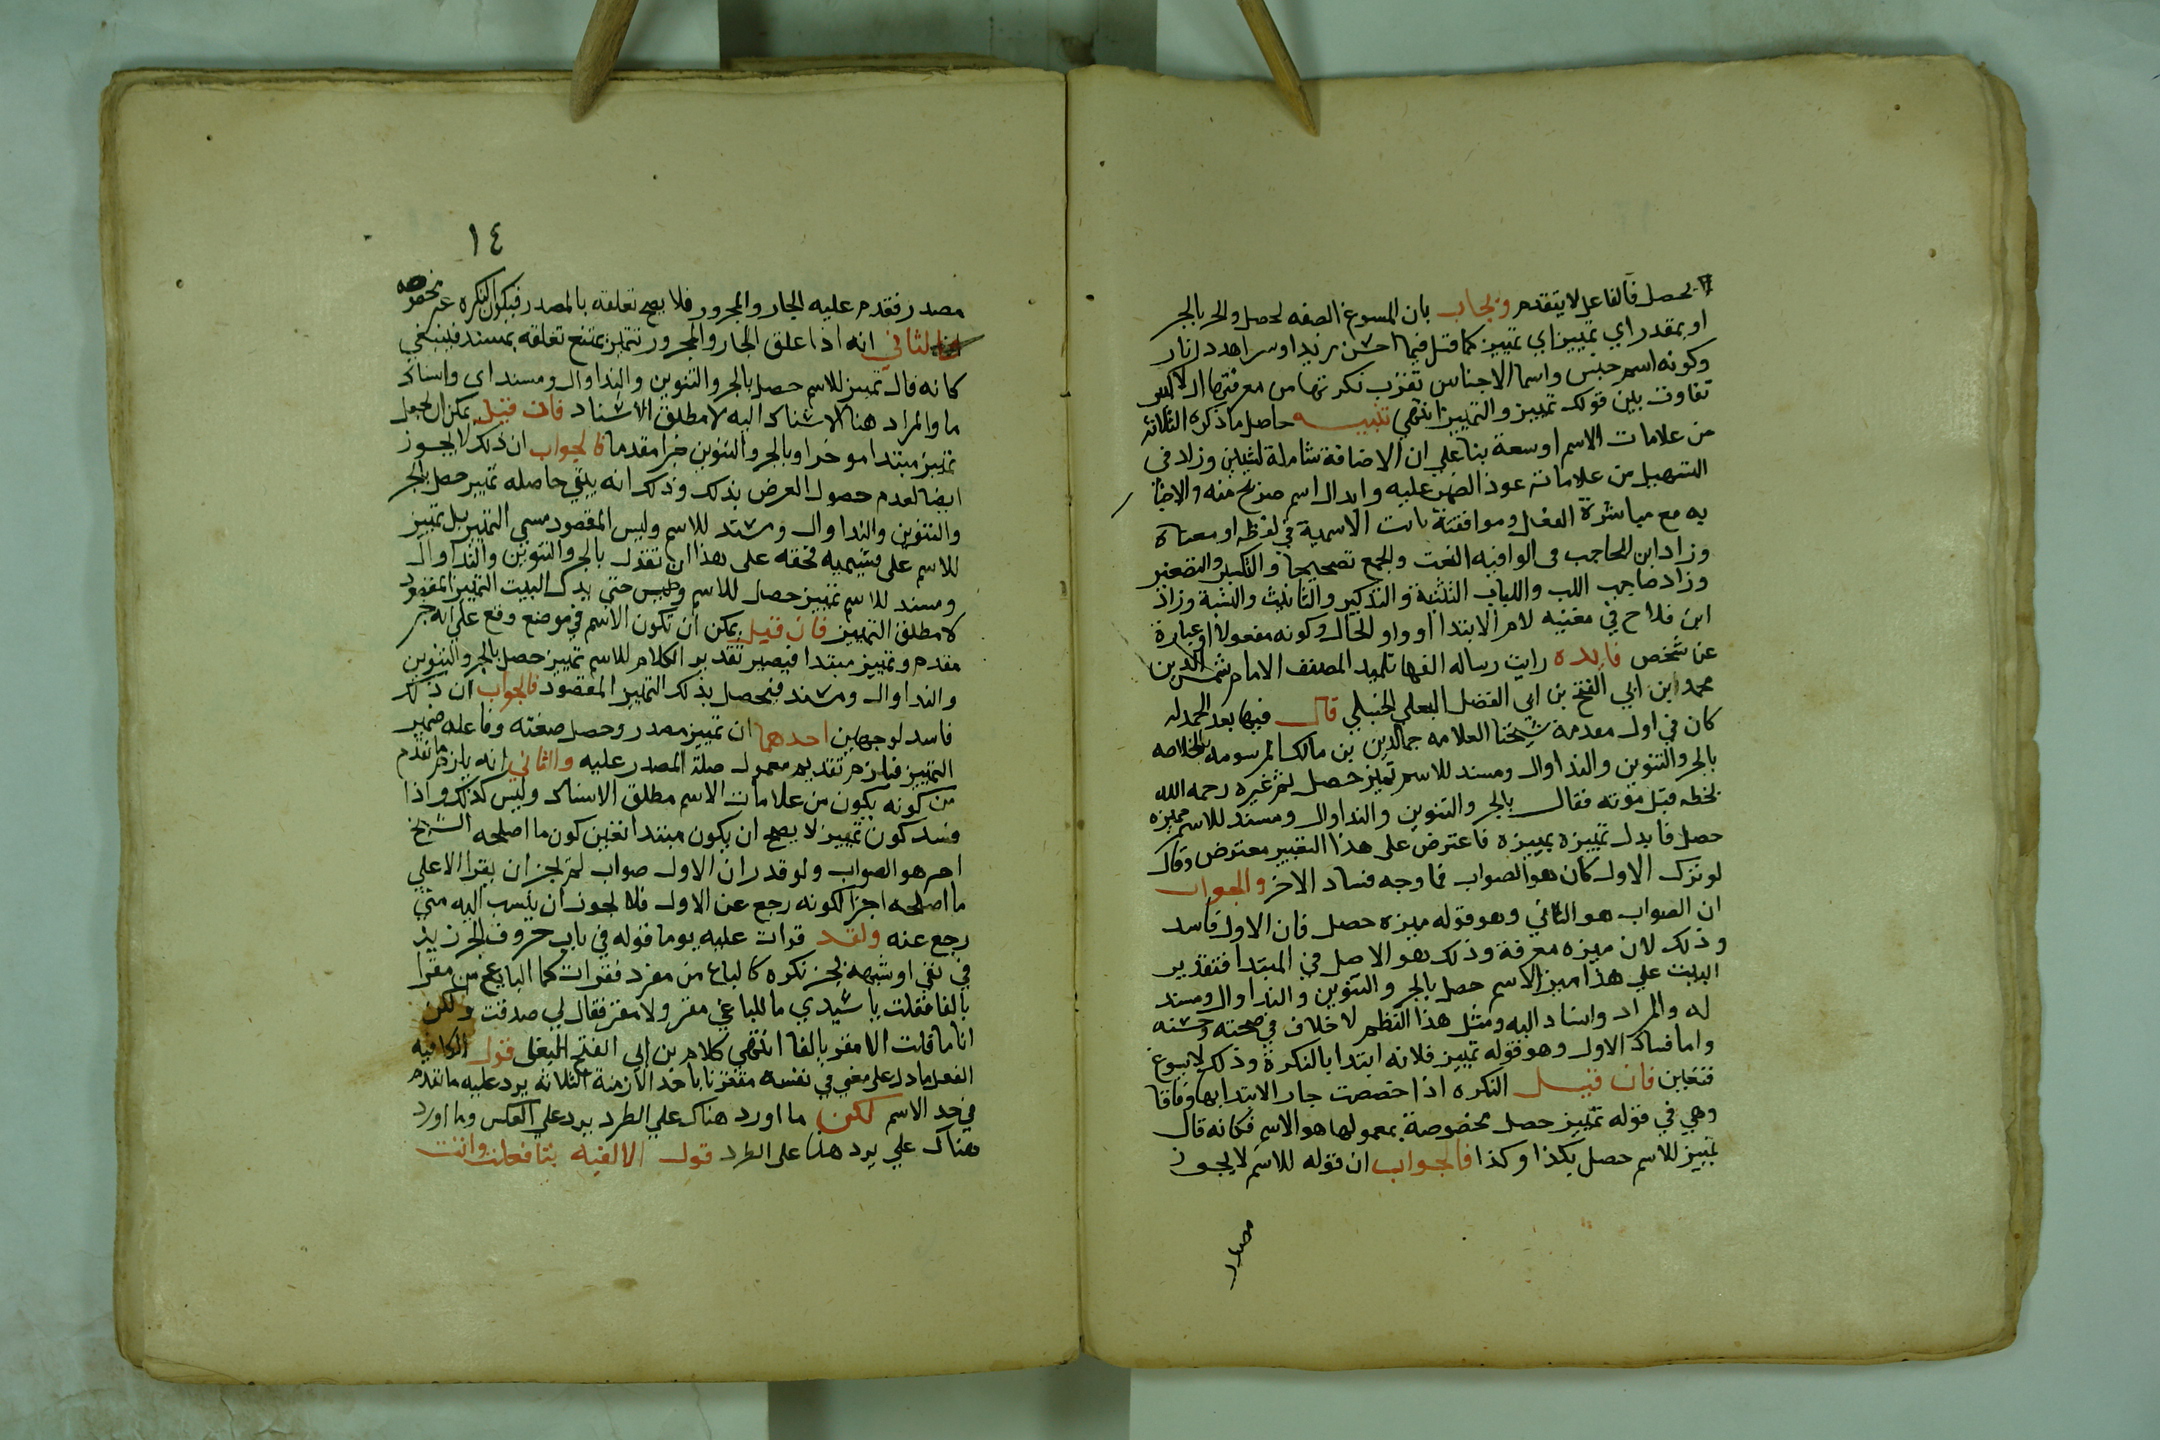 لحصل فالفاعل لا يتقدم ويجاب بان المسوغ الصفه لحصل والجر بالجر
او بمقدر اي تمييز اي تمييز كما قيل فيما احسن زيدا
وكونه اسم جنس واسما الاجناس تقرب نكرتها من معرفتها
تفاوت بين قولك تمييز والتمييز انتهي تنبيه حاصل ما ذكره الثلاثة
من علامات الاسم اوسعة بنا علي ان الاضافة شاملة لشيين وزاد في
التسهيل من علاماته عود الضمير عليه وابدال اسم صريح منه والاخبار
به مع مباشرة الفعل وموافقة ثابت الاسمية في لفظه او معناه
وزاد ابن الحاجب في الوافيه النعت والجمع تصحيحا والتكسير والتصغير
وزاد صاحب اللب واللباب التثنية والتذكير والتانيث والنسبة وزاد
ابن فلاح في مغنيه لام الابتدا او واو الحال وكونه مفعولا او عبارة
عن شخص فايده رايت رساله الفها تلميد المصنف الامام شمس الدين
محمد ابن ابي الفتح بن ابي الفضل البعلي الحنبلي قال فيها بعد الحمدله
كان في اول مقدمة شيخنا العلامه جمال الدين بن مالك المرسومه بالخلاصه
بالجر والتنوين والندا وال ومسند للاسم تمييز حصل ثم غيره رحمه الله
بخطه قبل موته فقال بالجر والتنوين والندا وال ومسند للاسم مميزه
حصل فابدل تمييزه بمييزه فاعترض علي هذا التغيير معترض وقال
لو ترك الاول كان هو الصواب فما وجه فساد الاخر والجواب
ان الصواب هو الثاني وهو قوله ميزه حصل فان الاول فاسد
وذلك لان ميزه معرفة وذلك هو الاصل في المبتدا فتقدير
البيت علي هذا ميز الاسم حصل بالجر والتنوين والندا وال ومسند
له والمراد واسناد اليه ومثل هذا النظم لا خلاف في صحته وحسنه
واما فساد الاول وهو قوله تمييز فلانه ابتدا بالنكرة وذلك لا يسوغ
فتعين فان قيل النكره اذا خصصت جاز الابتدا بها وفاقا
وهي في قوله تمييز حصل مخصوصة بمعمولها هو الاسم فكانه قال
تمييز للاسم حصل بكذا وكذا فالجواب ان قوله للاسم لا يجوز
مصدر
١٤
مصدر فقدم عليه الجار والمجرور فلا يصح تعلقه بالمصدر فيكون النكره غير مخصصه
الثاني انه اذا علق الجار والمجرور بتمييز يمتنع تعلقه بمسند فينبغي
كانه قال تمييز للاسم حصل بالجر والتنوين والندا وال ومسند اي واسناد
ما والمراد هنا الاسناد اليه لا مطلق الاسناد فان قيل يمكن ان يجعل
تمييز مبتدا موخرا وبالجر والتنوين خبرا مقدما فالجواب ان ذلك لا يجوز
ايضا لعدم حصول الغرض بذلك وذلك انه يبقي حاصله تمييز حصل بالجر
والتنوين والندا وال ومسند للاسم وليس المقصود مسمي التمييز بل تمييز
للاسم علي قسيميه فحقه علي هذا ان تقول بالجر والتنوين والندا وال
ومسند للاسم تمييز حصل للاسم وليس حتي يدل البيت التمييز المقصود
لا مطلق التمييز فان قيل يمكن ان تكون الاسم في موضع رفع علي انه خبر
مقدم وتمييز مبتدا فيصير تقدير الكلام للاسم تمييز حصل بالجر والتنوين
والندا وال ومسند فيحصل بذلك التمييز المقصود فالجواب ان ذلك
فاسد لوجهين احدهما ان تمييز مصدر وحصل صفته وفاعله ضمير
التمييز فيلزم تقديم معمول صلة المصدر عليه والثاني انه يلزم ما تقدم
من كونه يكون من علامات الاسم مطلق الاسناد وليس كذلك واذا
فسد كون تمييز لا يصح ان يكون مبتدا تعين كون ما اصلحه الشيخ
احر هو الصواب ولو قدر ان الاول صواب لم يجز ان يقرا الا علي
ما اصلحه اجزا لكونه رجع عن الاول فلا يجوز ان ينسب اليه شي
رجع عنه ولقد قرات عليه يوما قوله في باب حروف الجر وزيد
في نفي او شبهه فجر نكره كما لباغ من مفر فقرات كما الباغ من مقر
بالقاف فقلت يا سيدي ما للباغي مقر ولا مفر فقال لي صدقت ولكن
انا ما قلت الا مفر بالفا انتهي كلام بن ابي الفتح البعلي قول الكافيه
الفعل ما دل علي معني في نفسه مقترنا باحد الازمنة الثلاثه يرد عليه ما تقدم
في حد الاسم لكن ما اورد هناك علي الطرد يرد علي العكس وما اورد
هناك علي يرد هنا علي الطرد قول الالفيه بتا فعلت واتت